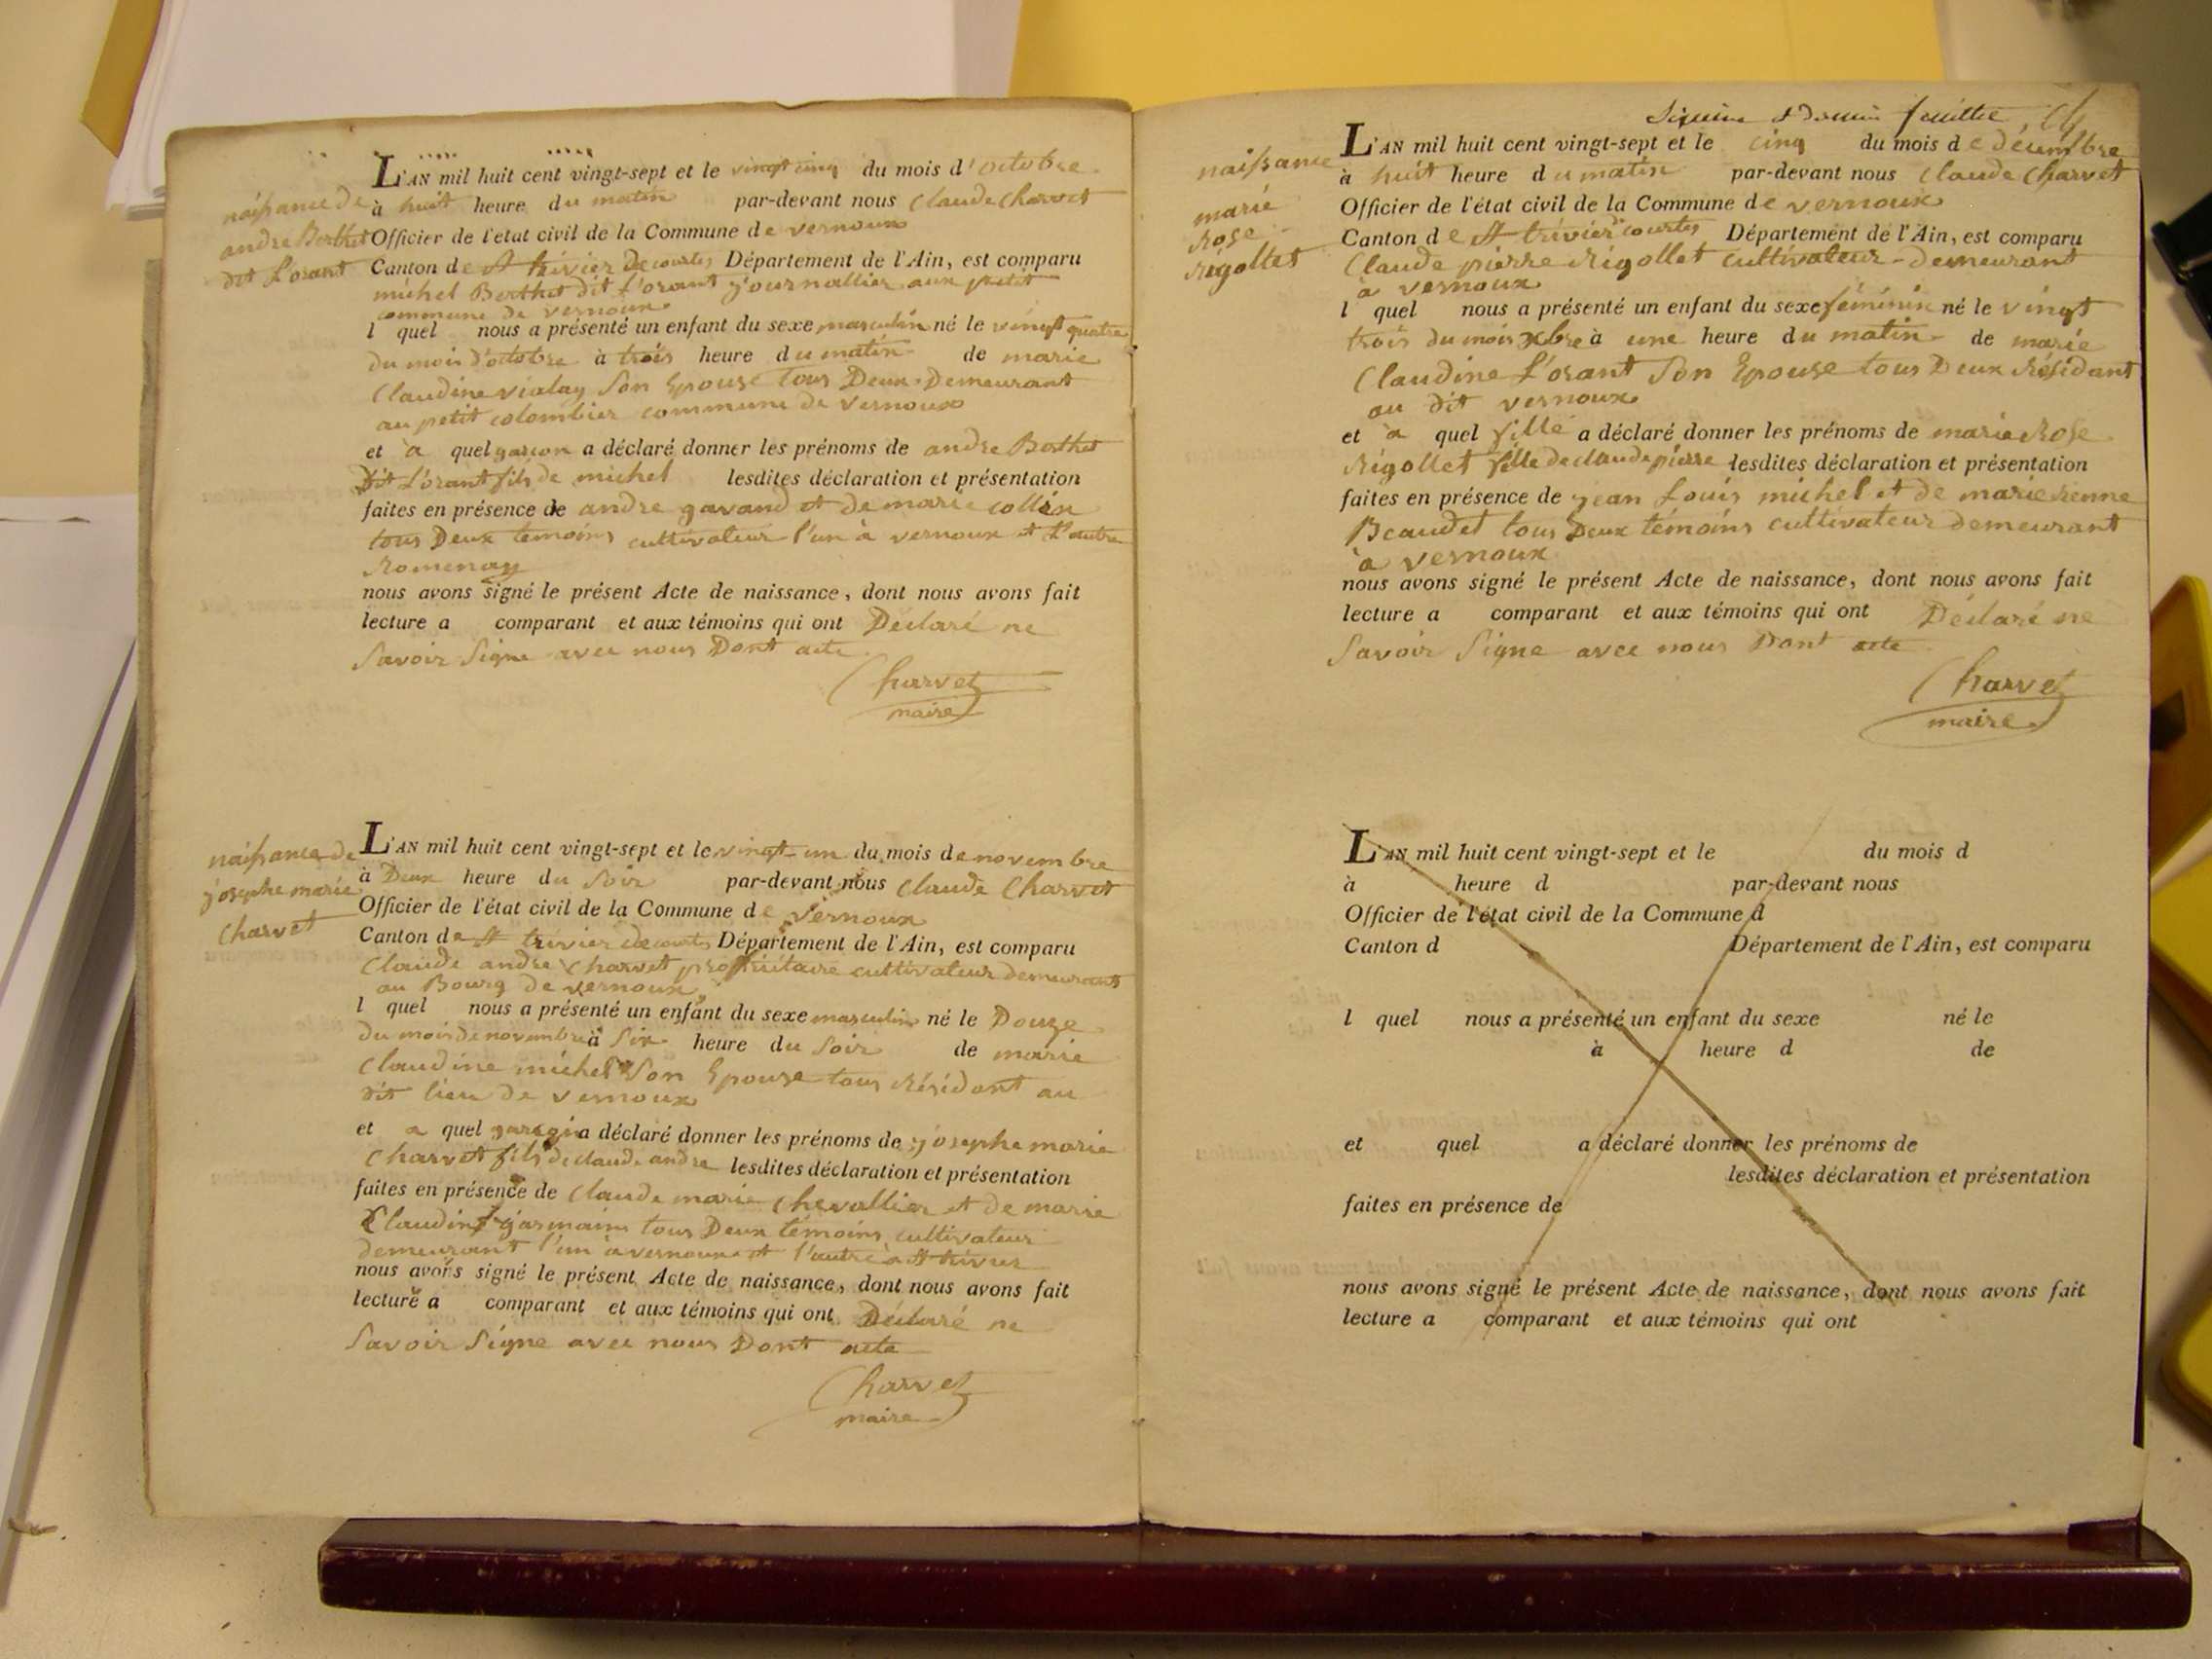 naissance de
andre Berthet
dit L'orant
L'AN mil huit cent vingt-sept et le vingt cinq du mois d'octobre
à huit heure du matin par-devant nous Claude Charvet
Officier de l'état civil de la Commune de vernoux
Canton de St trivier de courtes Département de l'Ain, est comparu
michel Berthet dit L'orant journallier aux petit
commune de vernoux
l quel nous a présenté un enfant du sexe masculin né le vingt quatre
du mois d'octobre à trois heure du matin de marie
Claudine vialay Son Epouse tous Deux Demeurant
au petit colombier commune de vernoux
et a quel garcon a déclaré donner les prénoms de andre Berthet
Dit L'orant fils de michel lesdites déclaration et présentation
faites en présence de andre gavand et de marie collin
tous Deux temoins cultivateur l'un à vernoux et l'autre
Romenay
nous avons signé le présent Acte de naissance, dont nous avons fait
lecture a comparant et aux témoins qui ont Déclaré ne
Savoir Signe avec nous Dont acte
Charvet
maire
naissance de
josephe marie
Charvet
L'AN mil huit cent vingt-sept et le vingt-un du mois de novembre
à Deux heure du Soir par-devant nous Claude Charvet
Officier de l'état civil de la Commune de vernoux
Canton de St trivier de courtes Département de l'Ain, est comparu
Claude andre Charvet propriétaire cultivateur demeurant
au Bourg de vernoux
l quel nous a présenté un enfant du sexe masculin né le Douze
du mois de novembre à Six heure du Soir de marie
Claudine michel Son Epouse tous Résidant au
dit lieu de vernoux
et a quel garcon a déclaré donner les prénoms de josephe marie
Charvet fils de claude andre lesdites déclaration et présentation
faites en présence de Claude marie Chevallier et de marie
Claudine germain tous Deux témoins cultivateur
demeurant l'un à vernoux et l'autre à St trivier
nous avons signé le présent Acte de naissance, dont nous avons fait
lecture a comparant et aux témoins qui ont Déclaré ne
Savoir Signe avec nous Dont acte
Charvet
maire
feuillet
naissance
marie
Rose
Rigollet
L'AN mil huit cent vingt-sept et le cinq du mois de décembre
à huit heure du matin par-devant nous Claude Charvet
Officier de l'état civil de la Commune de vernoux
Canton de St trivier courtes Département de l'Ain, est comparu
Claude pierre Rigollet cultivateur demeurant
à vernoux
l quel nous a présenté un enfant du sexe féminin né le vingt
trois du mois Xbre à une heure du matin de marie
Claudine L'orant Son Epouse tous Deux Résidant
au dit vernoux
et a quel fille a déclaré donner les prénoms de marie Rose
Rigollet fille de claude pierre lesdites déclaration et présentation
faites en présence de jean Louis michel et de marie
Beaudet tous Deux témoins cultivateur demeurant
à vernoux
nous avons signé le présent Acte de naissance, dont nous avons fait
lecture a comparant et aux témoins qui ont Déclaré ne
Savoir Signe avec nous Dont acte
Charvet
maire
L'AN mil huit cent vingt-sept et le du mois d
à heure d par-devant nous
Officier de l'état civil de la Commune d
Canton d Département de l'Ain, est comparu
l quel nous a présenté un enfant du sexe né le
à heure d de
et quel a déclaré donner les prénoms de
lesdites déclaration et présentation
faites en présence de
nous avons signé le présent Acte de naissance, dont nous avons fait
lecture a comparant et aux témoins qui ont